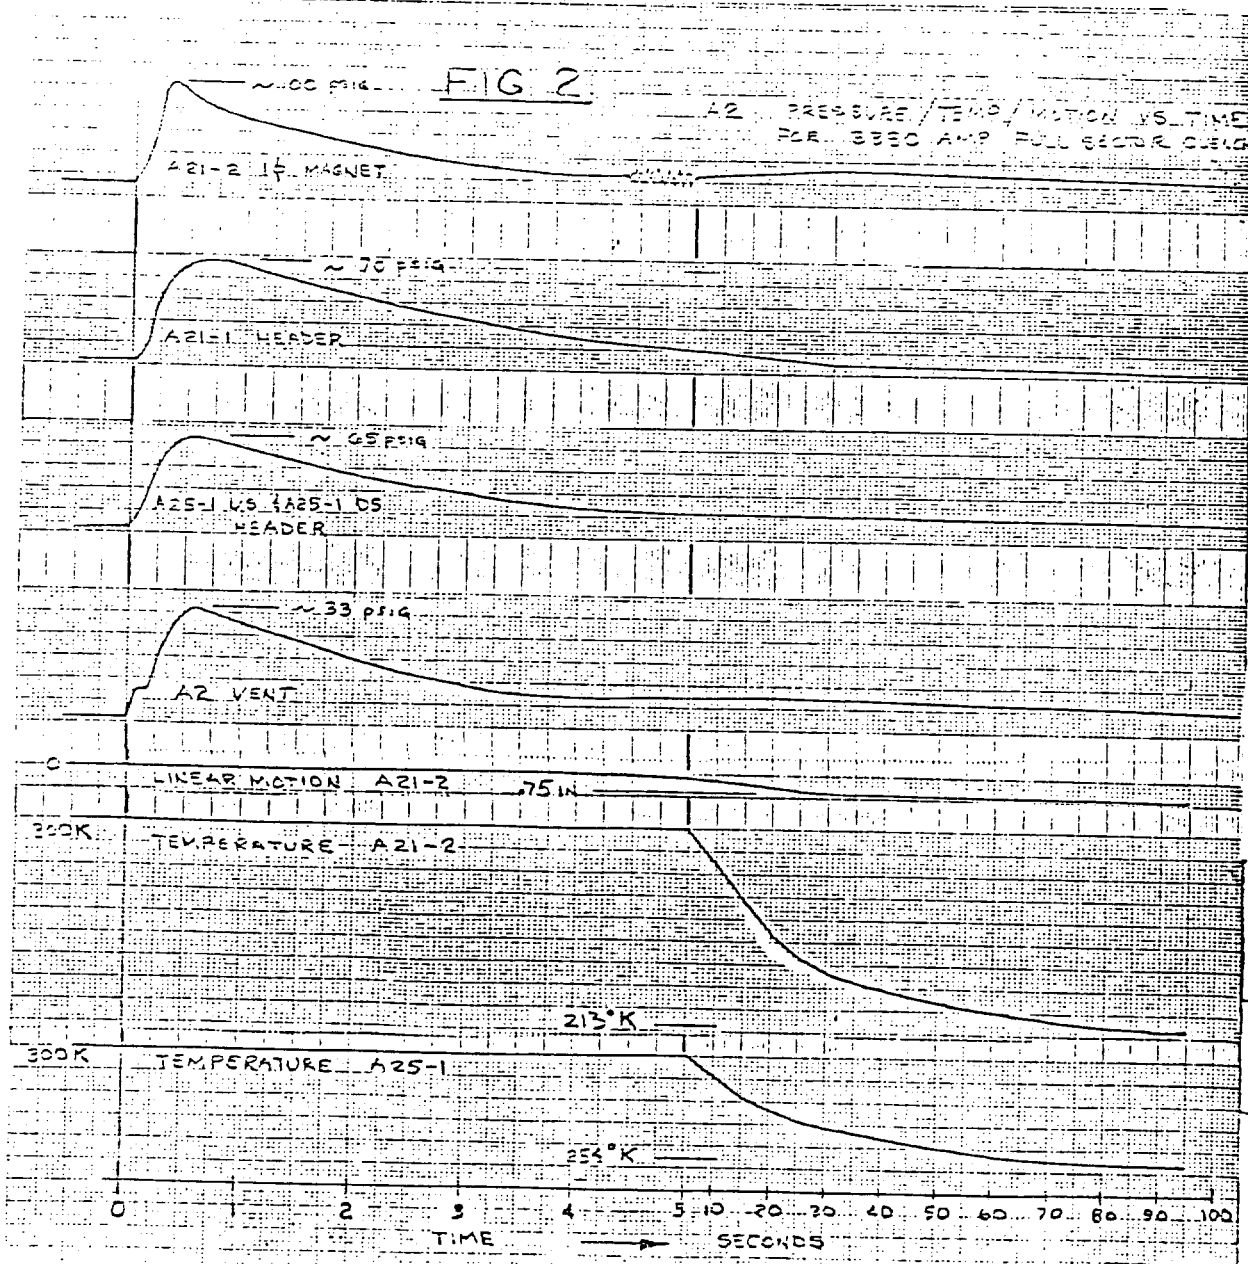 FIG 2
A2 PRESSURE / TEMP / MOTION VS TIME
FOR AMP FULL SECTOR
psig
A21-2 1φ MAGNET
~ 70 psig
A21-1 HEADER
~ 65 psig
A25-1 US & A25-1 DS
HEADER
~ 33 psig
A2 VENT
0
LINEAR MOTION A21-2 .75 IN
300K
TEMPERATURE A21-2
213°K
300K
TEMPERATURE A25-1
°K
0 1 2 3 4 5 10 20 30 40 50 60 70 80 90 100
TIME SECONDS